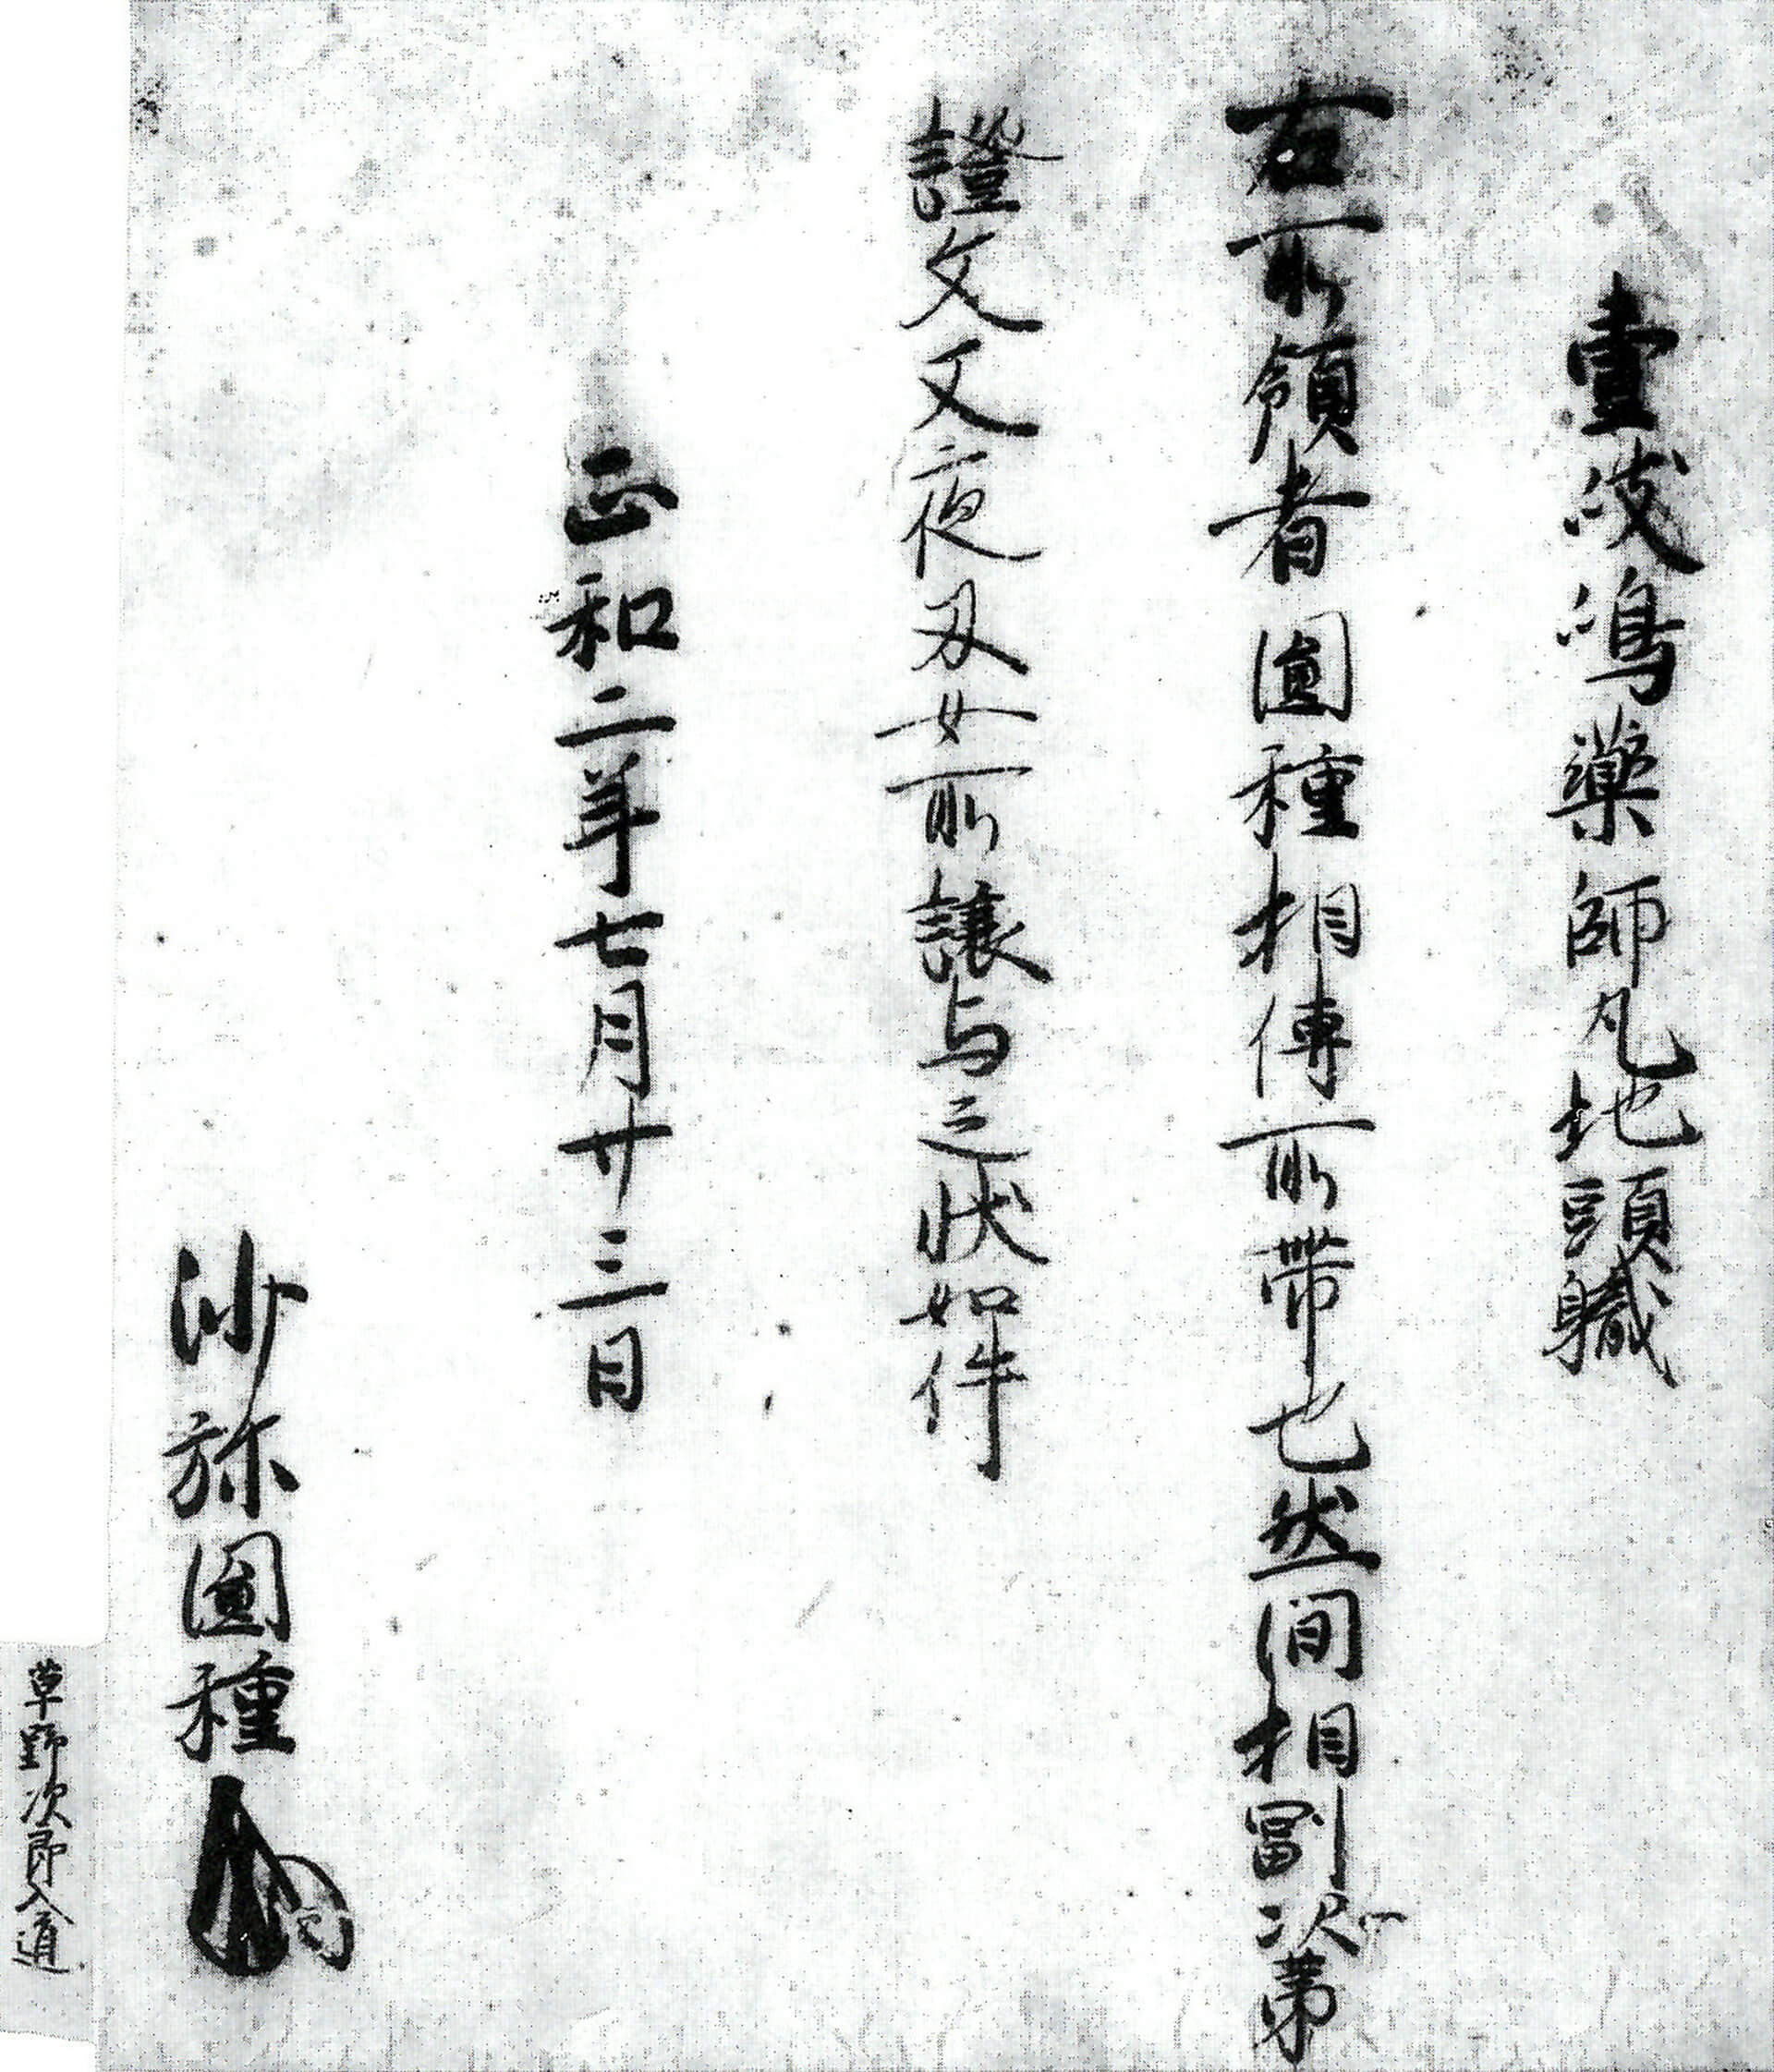 壹岐嶋藥師丸地頭職
右所領者圓種相傳所帶也然間相副次第
證文又夜叉女所讓与之狀如件
正和二年七月廿三日
沙弥圓種
草野次郎入道